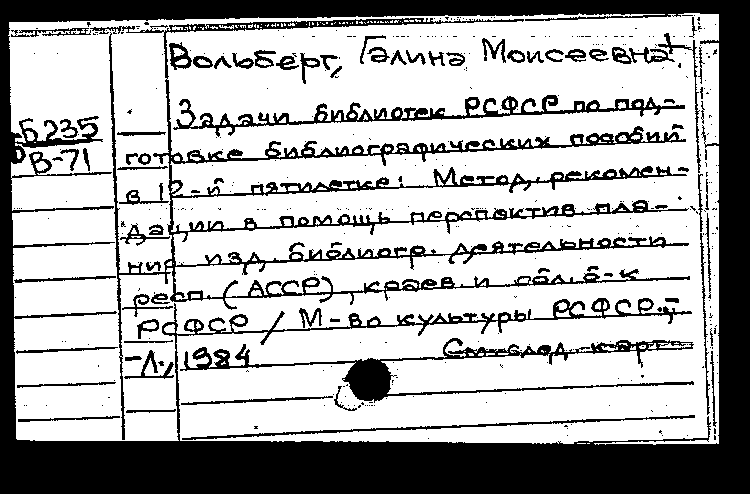 Вольберг, Галина Моисеевна+.
Б235
В-71
Задачи библиотек РСФСР по под-
готовке библиографических пособий
в 12-й пятилетке: Метод. рекомен-
дации в помощь перспектив. пла-
нир. изд. библиогр. деятельности
респ. (АССР), краев. и обл. б-к
РСФСР / М-во культуры РСФСР.;-
-Л., 1984
См. след. карт